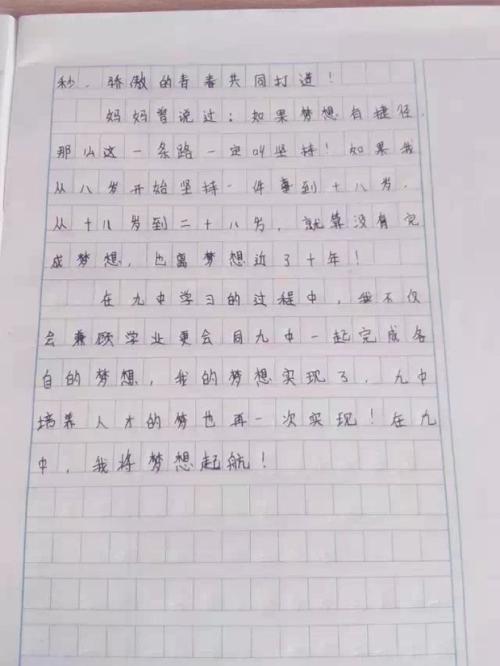 秒，骄傲的青春共同打造！
妈妈曾说过：如果梦想有捷径，
那么这一条路一定叫坚持！如果我
从八岁开始坚持一件事到十八岁，
从十八岁到二十八岁，就算没有完
成梦想，也离梦想近了十年！
在九中学习的过程中，我不仅
会兼顾学业更会同九中一起完成各
自的梦想，我的梦想实现了，九中
培养人才的梦也再一次实现！在九
中，我将梦想起航！